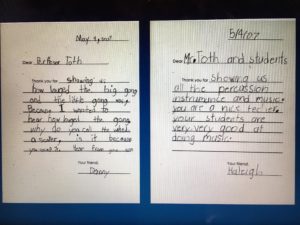 May 4, 2007
Dear Professor Toth
Thank you for showing us
how lauged the big gong
and the little gong was
Because I wanted to
hear how lauged the gong
why do you call the
a is it because
you hear from you soon
Your friend,
5/4/07
Dear Mr. Toth and students
Thank you for showing us
all the percussion
instruments and music.
you are a nice
your students are
very very good at
doing music.
Your friend,
Haleigh